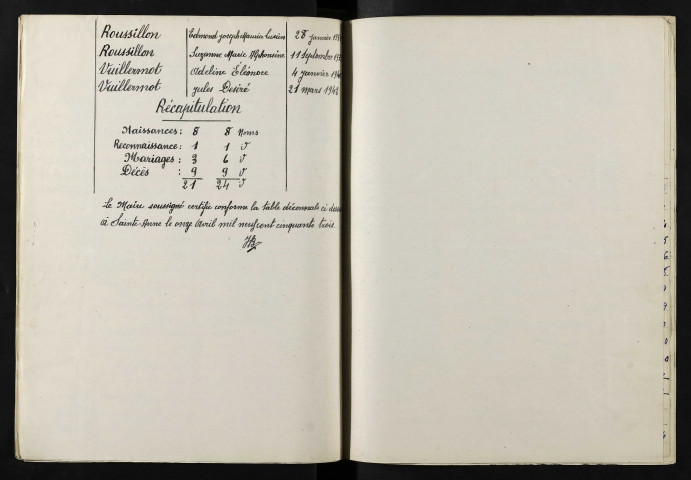 Roussillon Edmond Joseph Maurice Lucien 28 janvier
Roussillon Suzanne Marie Alphonsine 11 Septembre
Vuillermot Adeline Éléonore 4 janvier
Vuillermot Jules Desiré 21 mars 1948
Récapitulation
Naissances: 8 8 Noms
Reconnaissance: 1 1 d
Mariages: 3 6 d
Décès: 9 9 d
21 24 d
Le Maire soussigné certifie conforme la table décennale ci dessus
à Sainte-Anne le onze Avril mil neuf cent cinquante trois.